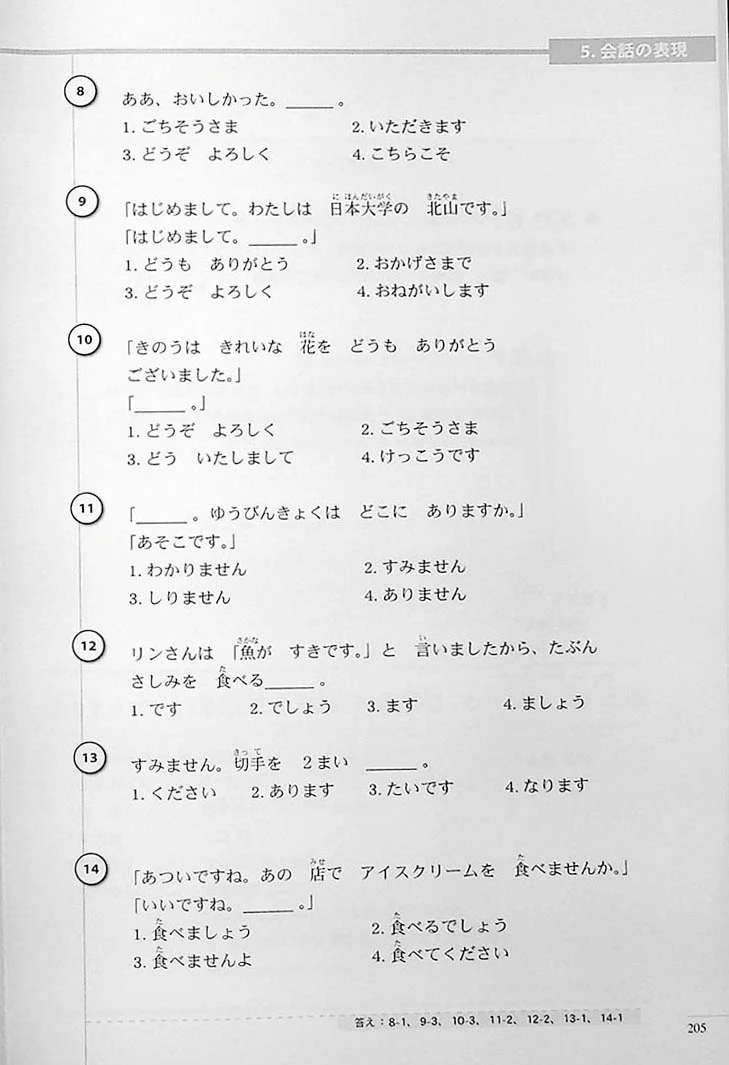 5. 会話の表現
8 ああ、おいしかった。_____ 。
1. ごちそうさま 2. いただきます
3. どうぞ よろしく 4. こちらこそ
9 「はじめまして。わたしは 日本大学の 北山です。」
「はじめまして。_____ 。」
1. どうも ありがとう 2. おかげさまで
3. どうぞ よろしく 4. おねがいします
10 「きのうは きれいな 花を どうも ありがとう
ございました。」
「_____ 。」
1. どうぞ よろしく 2. ごちそうさま
3. どう いたしまして 4. けっこうです
11 「_____ 。ゆうびんきょくは どこに ありますか。」
「あそこです。」
1. わかりません 2. すみません
3. しりません 4. ありません
12 リンさんは 「魚が すきです。」と 言いましたから、たぶん
さしみを 食べる_____ 。
1. です 2. でしょう 3. ます 4. ましょう
13 すみません。切手を 2まい _____ 。
1. ください 2. あります 3. たいです 4. なります
14 「あついですね。あの 店で アイスクリームを 食べませんか。」
「いいですね。_____ 。」
1. 食べましょう 2. 食べるでしょう
3. 食べませんよ 4. 食べてください
答え：8-1、9-3、10-3、11-2、12-2、13-1、14-1
205